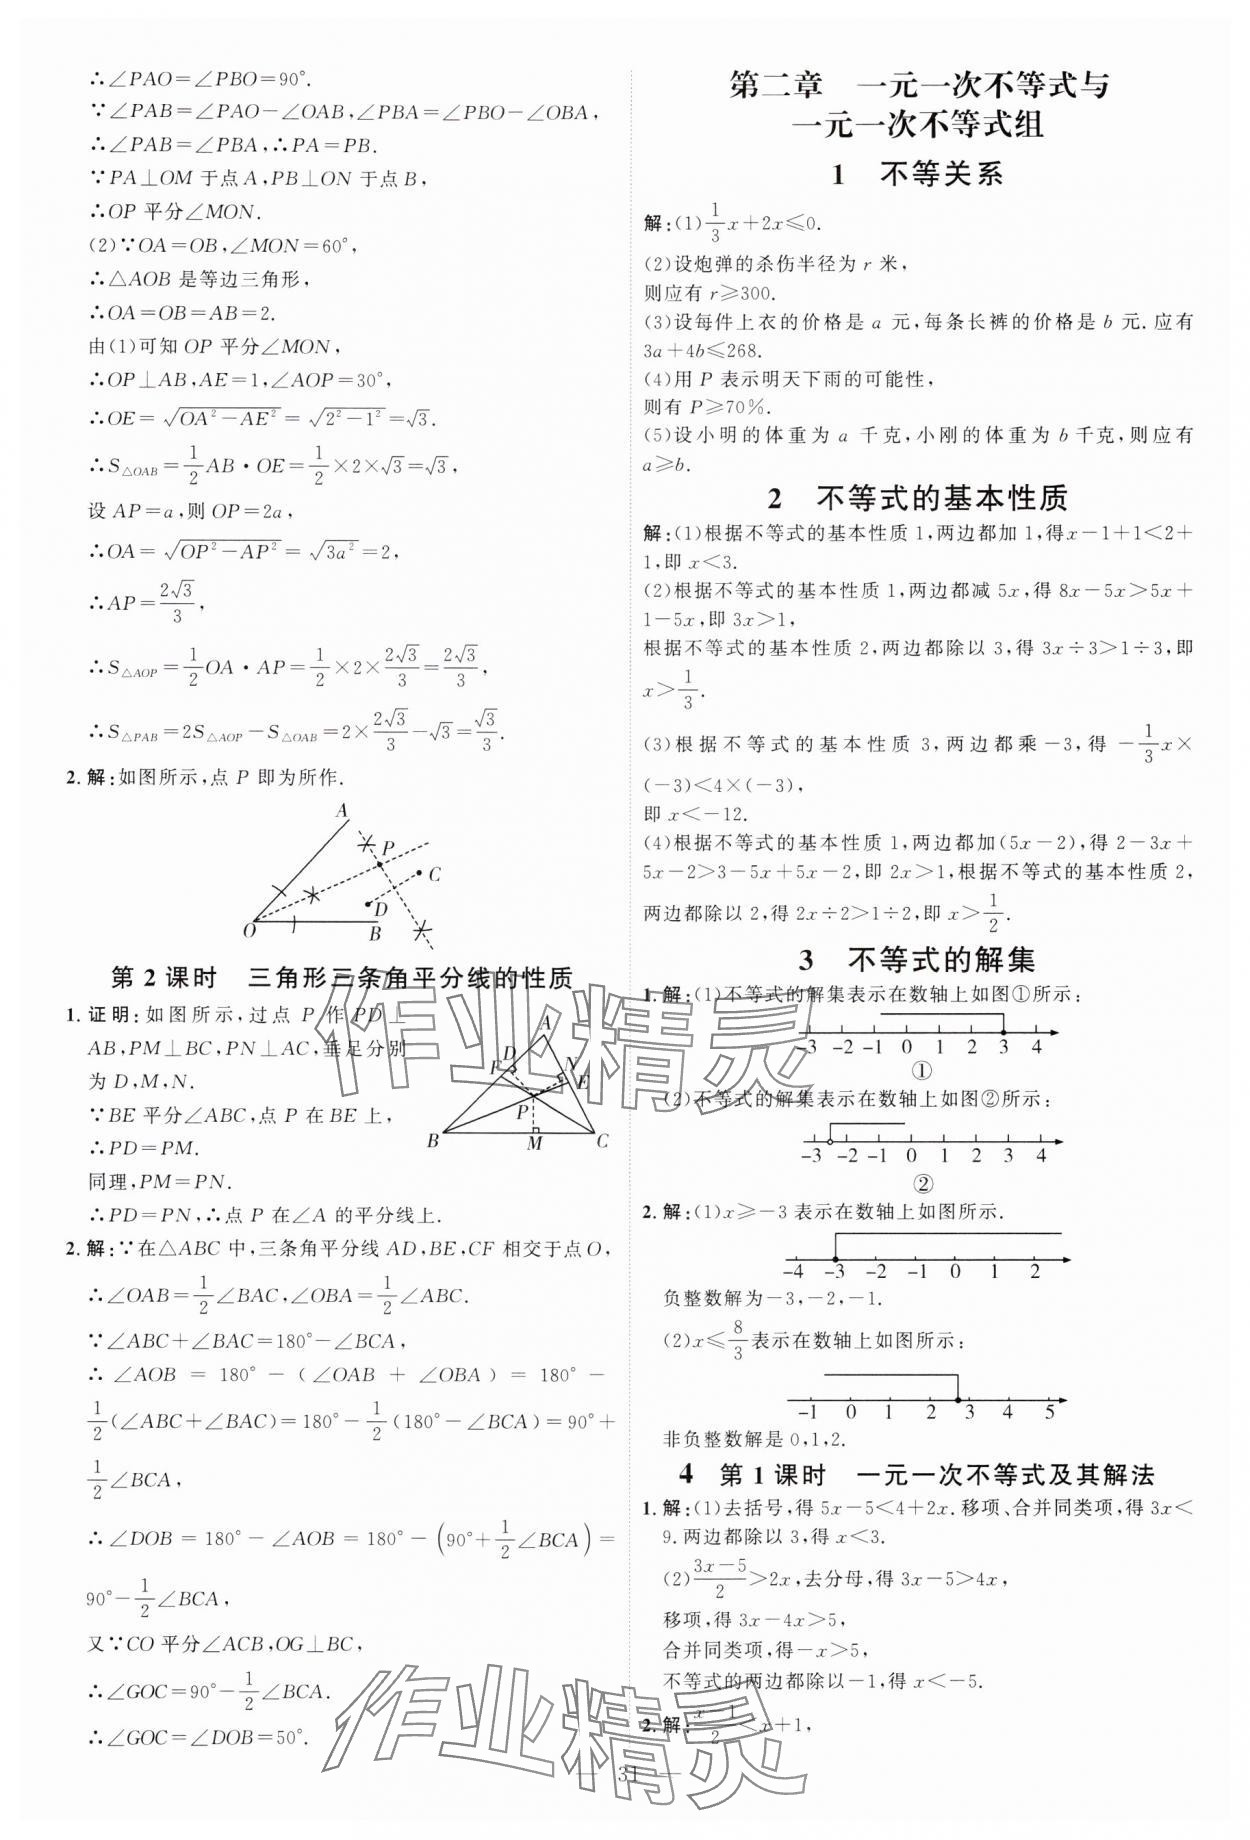 ∴∠PAO=∠PBO=90°.
∵∠PAB=∠PAO-∠OAB,∠PBA=∠PBO-∠OBA,
∴∠PAB=∠PBA,∴PA=PB.
∵PA⊥OM 于点 A,PB⊥ON 于点 B,
∴OP 平分∠MON.
(2)∵OA=OB,∠MON=60°,
∴△AOB 是等边三角形,
∴OA=OB=AB=2.
由(1)可知 OP 平分∠MON,
∴OP⊥AB,AE=1,∠AOP=30°,
∴OE=√(OA²-AE²)=√(2²-1²)=√3.
∴S△OAB=1/2 AB·OE=1/2×2×√3=√3,
设 AP=a,则 OP=2a,
∴OA=√(OP²-AP²)=√(3a²)=2,
∴AP=2√3/3,
∴S△AOP=1/2 OA·AP=1/2×2×2√3/3=2√3/3,
∴S△PAB=2S△AOP-S△OAB=2×2√3/3-√3=√3/3.
2.解:如图所示,点 P 即为所作.
A
P
C
D
O
B
第 2 课时 三角形三条角平分线的性质
1.证明:如图所示,过点 P 作 PD⊥
AB,PM⊥BC,PN⊥AC,垂足分别
为 D,M,N.
∵BE 平分∠ABC,点 P 在 BE 上,
∴PD=PM.
同理,PM=PN.
∴PD=PN,∴点 P 在∠A 的平分线上.
A
D
F
N
E
P
B
M
C
2.解:∵在△ABC 中,三条角平分线 AD,BE,CF 相交于点 O,
∴∠OAB=1/2∠BAC,∠OBA=1/2∠ABC.
∵∠ABC+∠BAC=180°-∠BCA,
∴∠AOB=180°-(∠OAB+∠OBA)=180°-
1/2(∠ABC+∠BAC)=180°-1/2(180°-∠BCA)=90°+
1/2∠BCA,
∴∠DOB=180°-∠AOB=180°-(90°+1/2∠BCA)=
90°-1/2∠BCA,
又∵CO 平分∠ACB,OG⊥BC,
∴∠GOC=90°-1/2∠BCA.
∴∠GOC=∠DOB=50°.
第二章 一元一次不等式与
一元一次不等式组
1 不等关系
解:(1)1/3x+2x≤0.
(2)设炮弹的杀伤半径为 r 米,
则应有 r≥300.
(3)设每件上衣的价格是 a 元,每条长裤的价格是 b 元.应有
3a+4b≤268.
(4)用 P 表示明天下雨的可能性,
则有 P≥70%.
(5)设小明的体重为 a 千克,小刚的体重为 b 千克,则应有
a≥b.
2 不等式的基本性质
解:(1)根据不等式的基本性质 1,两边都加 1,得 x-1+1<2+
1,即 x<3.
(2)根据不等式的基本性质 1,两边都减 5x,得 8x-5x>5x+
1-5x,即 3x>1,
根据不等式的基本性质 2,两边都除以 3,得 3x÷3>1÷3,即
x>1/3.
(3)根据不等式的基本性质 3,两边都乘-3,得 -1/3x×
(-3)<4×(-3),
即 x<-12.
(4)根据不等式的基本性质 1,两边都加(5x-2),得 2-3x+
5x-2>3-5x+5x-2,即 2x>1,根据不等式的基本性质 2,
两边都除以 2,得 2x÷2>1÷2,即 x>1/2.
3 不等式的解集
1.解:(1)不等式的解集表示在数轴上如图①所示:
-3 -2 -1 0 1 2 3 4
①
(2)不等式的解集表示在数轴上如图②所示:
-3 -2 -1 0 1 2 3 4
②
2.解:(1)x≥-3 表示在数轴上如图所示.
-4 -3 -2 -1 0 1 2
负整数解为-3,-2,-1.
(2)x≤8/3表示在数轴上如图所示:
-1 0 1 2 3 4 5
非负整数解是 0,1,2.
4 第 1 课时 一元一次不等式及其解法
1.解:(1)去括号,得 5x-5<4+2x.移项、合并同类项,得 3x<
9.两边都除以 3,得 x<3.
(2)(3x-5)/2>2x,去分母,得 3x-5>4x,
移项,得 3x-4x>5,
合并同类项,得-x>5,
不等式的两边都除以-1,得 x<-5.
2.解:(x-1)/2<x+1,
— 31 —
作业精灵
作业精灵